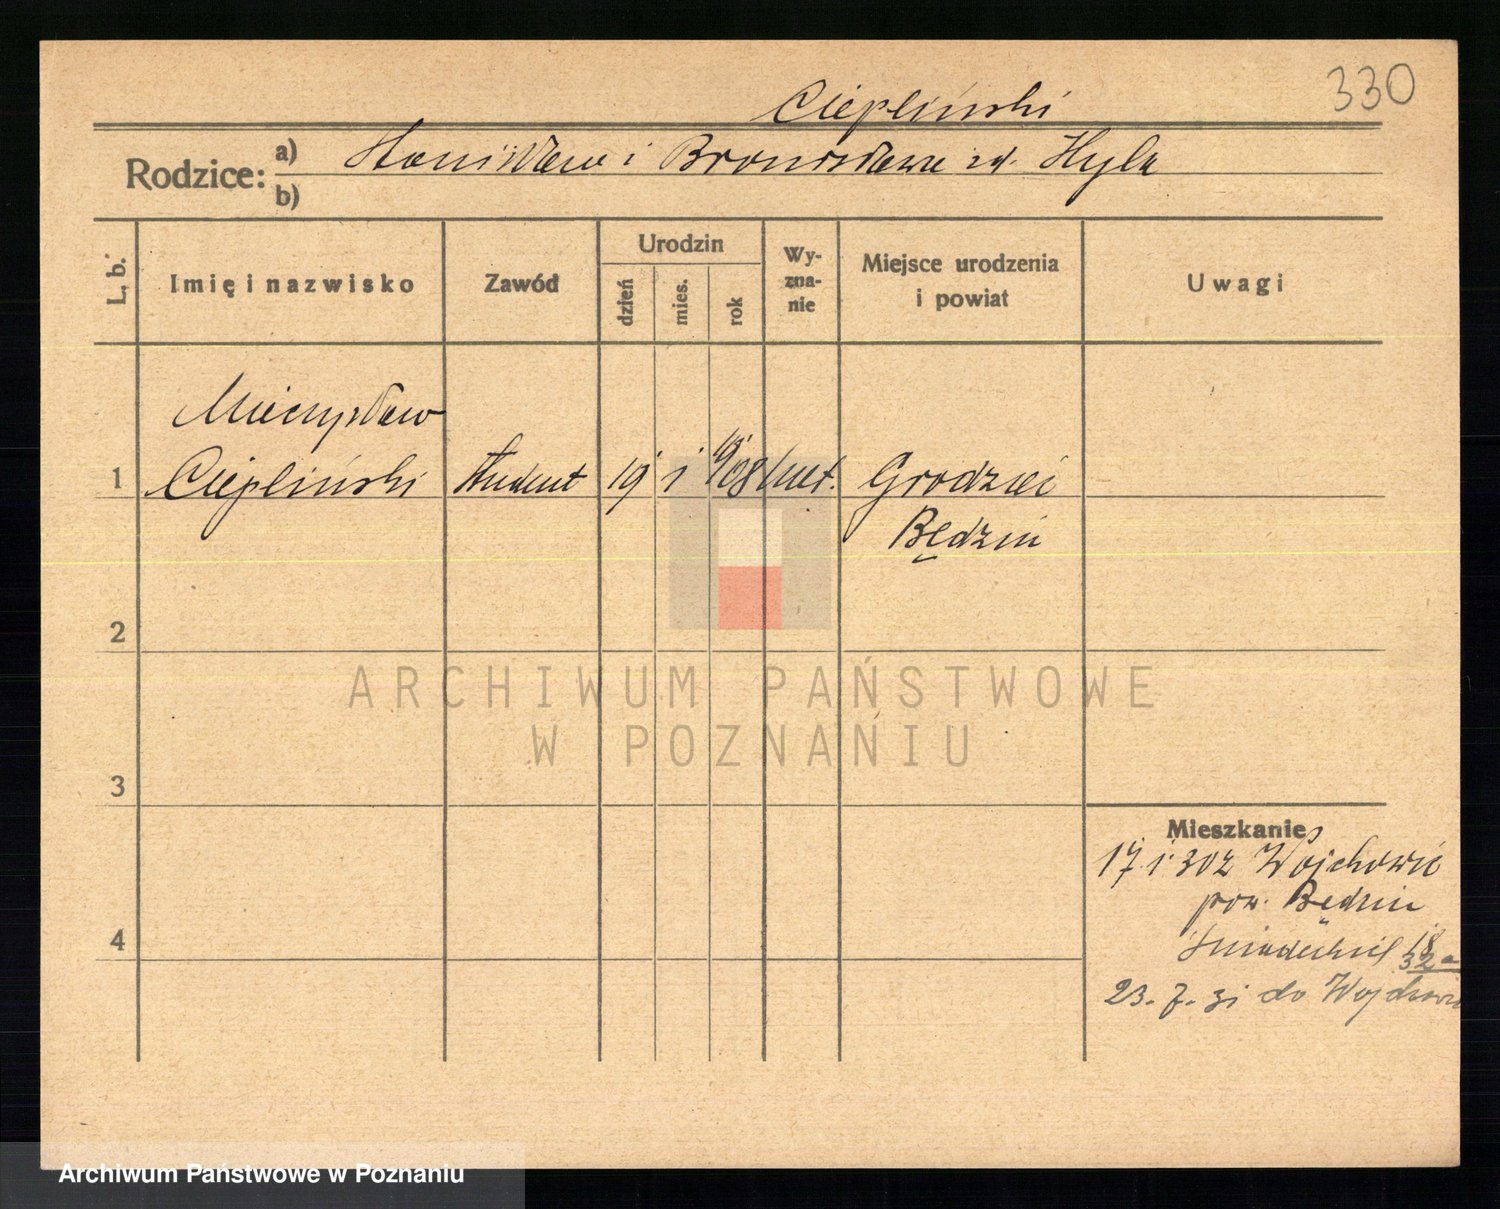 330
Ciepliński
Rodzice: a) Stanisław i Bronisława zd. Hyla
b)
L. b.
Imię i nazwisko
Zawód
Urodzin
dzień
mies.
rok
Wy-
zna-
nie
Miejsce urodzenia
i powiat
Uwagi
Mieczysław
1 Ciepliński student 19 1 1908 kat. Grodziec
Będzin
2
3
4
Mieszkanie
17.1.30 z Wojkowic
pow. Będzin
Śniadeckich 18
32a
23.7.31 do
ARCHIWUM PAŃSTWOWE
W POZNANIU
Archiwum Państwowe w Poznaniu